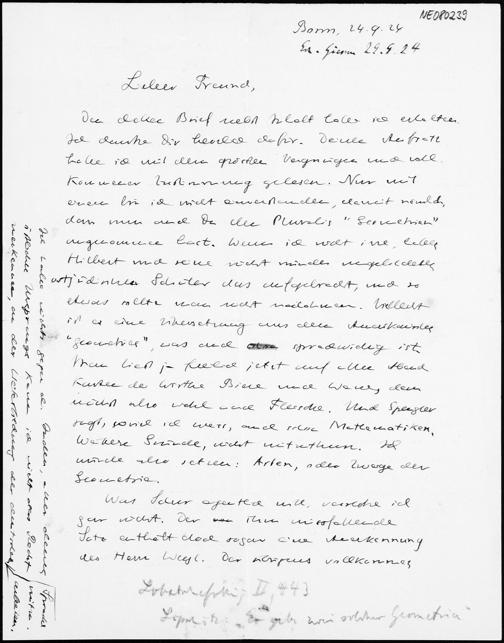 NE080239
Bonn, 24.9.24
29.9.24
Lieber Freund,
Den dicken Brief nebst Inhalt habe ich erhalten.
Ich danke Dir herzlich dafür. Deine Aufsätze
habe ich mit dem größten Vergnügen und voll-
kommener Zustimmung gelesen. Nur mit
einem bin ich nicht einverstanden, damit nämlich,
dass nun auch Du den Pluralis "Geometrien"
angenommen hast. Wenn ich nicht irre, haben
Hilbert und seine nicht minder ungebildeten
jüdischen Schüler das aufgebracht, und so
etwas sollte man nicht nachahmen. Vielleicht
ist es eine Übersetzung aus dem Amerikanischen
"geometries", was auch sprachwidrig ist.
Man liest ja jetzt auf allen
Karten der Wirthe Biere und Weine, dem-
nächst also wohl auch Fleische. Und Spengler
sagt, soviel ich weiss, auch schon Mathematiken.
Weitere Gründe, nicht mitzuthun. Ich
würde also setzen: Arten, oder Zweige der
Geometrie.
Was Schur eigentlich will, verstehe ich
gar nicht. Der ihm missfallende
Satz enthält doch sogar eine Anerkennung
des Herrn Weyl. Der übrigens vollkommen
Ich habe nichts gegen die Juden, aber
jüdischen Ursprungs kann ich nicht das Recht
zuerkennen, an der Weiterbildung der deutschen Sprache mitzuarbeiten.
Lobatschefskij II, 443
"Es gebe zwei solcher Geometrien"